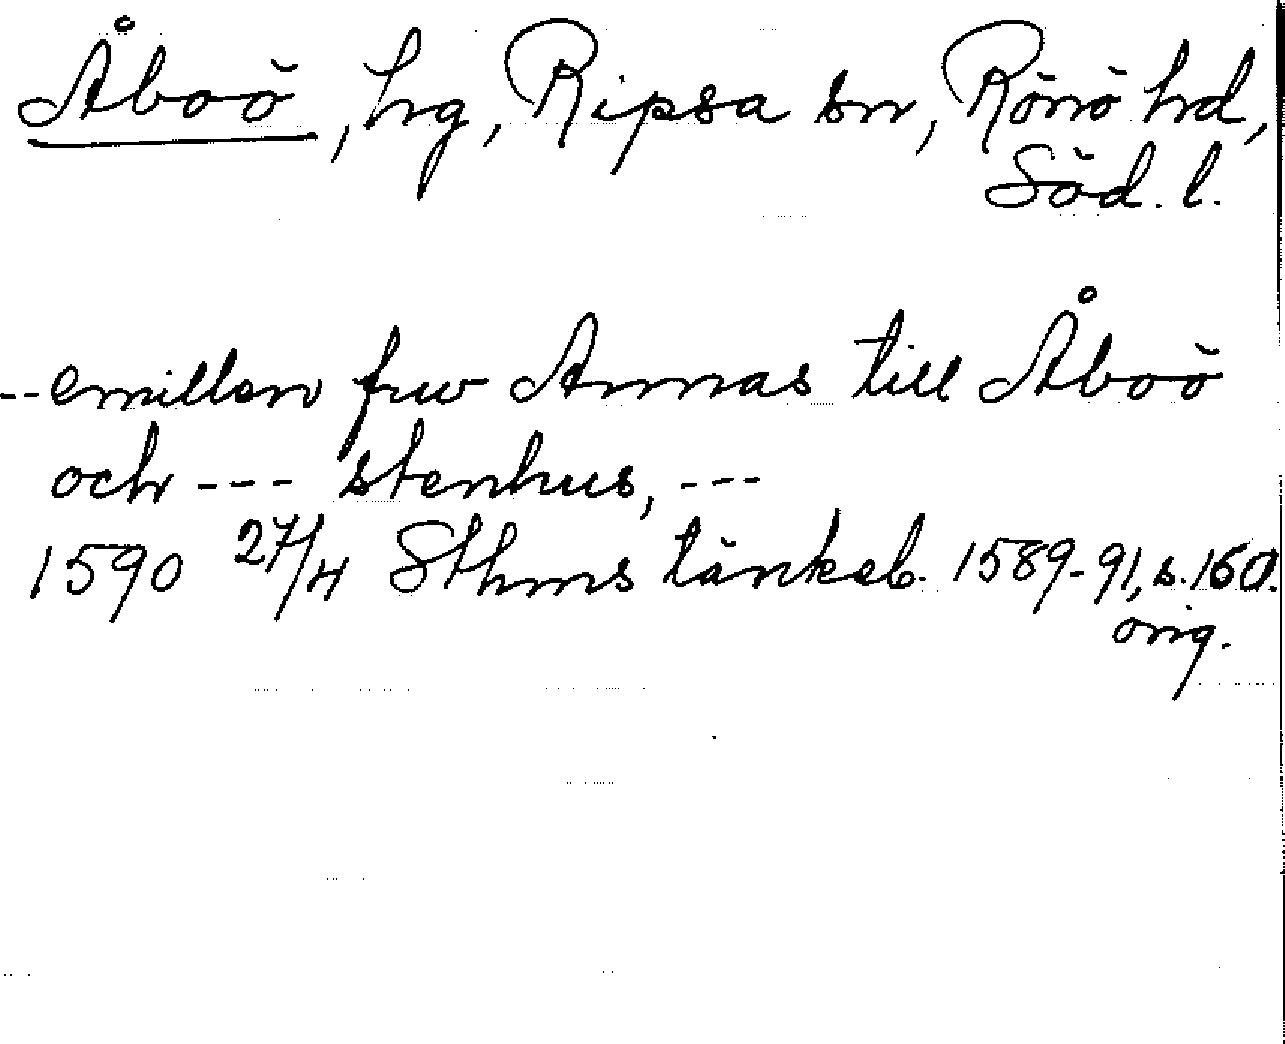 Åboö, hg, Ripsa sn, Rönö hd,
Söd. l.
--emillan fuw Annas till Åboö
och --- stenhus, ---
1590 27/4 Sthms tänkeb. 1589-91, s. 160.
orig.